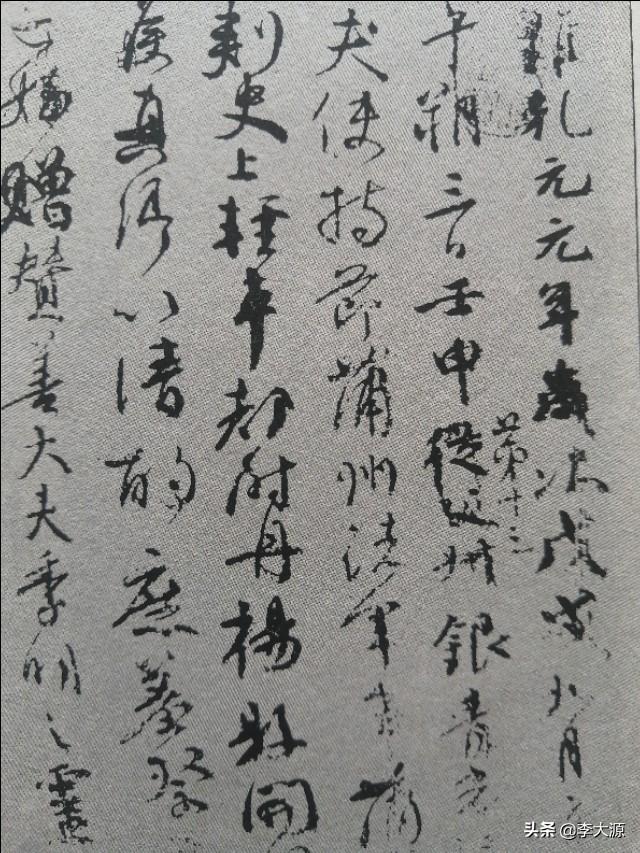 維乾元元年歲次戊戌九月
午朔三日壬申第十三從父叔銀青光
夫使持節蒲州諸軍事蒲
刺史上輕車都尉丹楊縣開
侯真卿以清酌庶羞祭
亡姪贈贊善大夫季明之靈
头条 @李大源